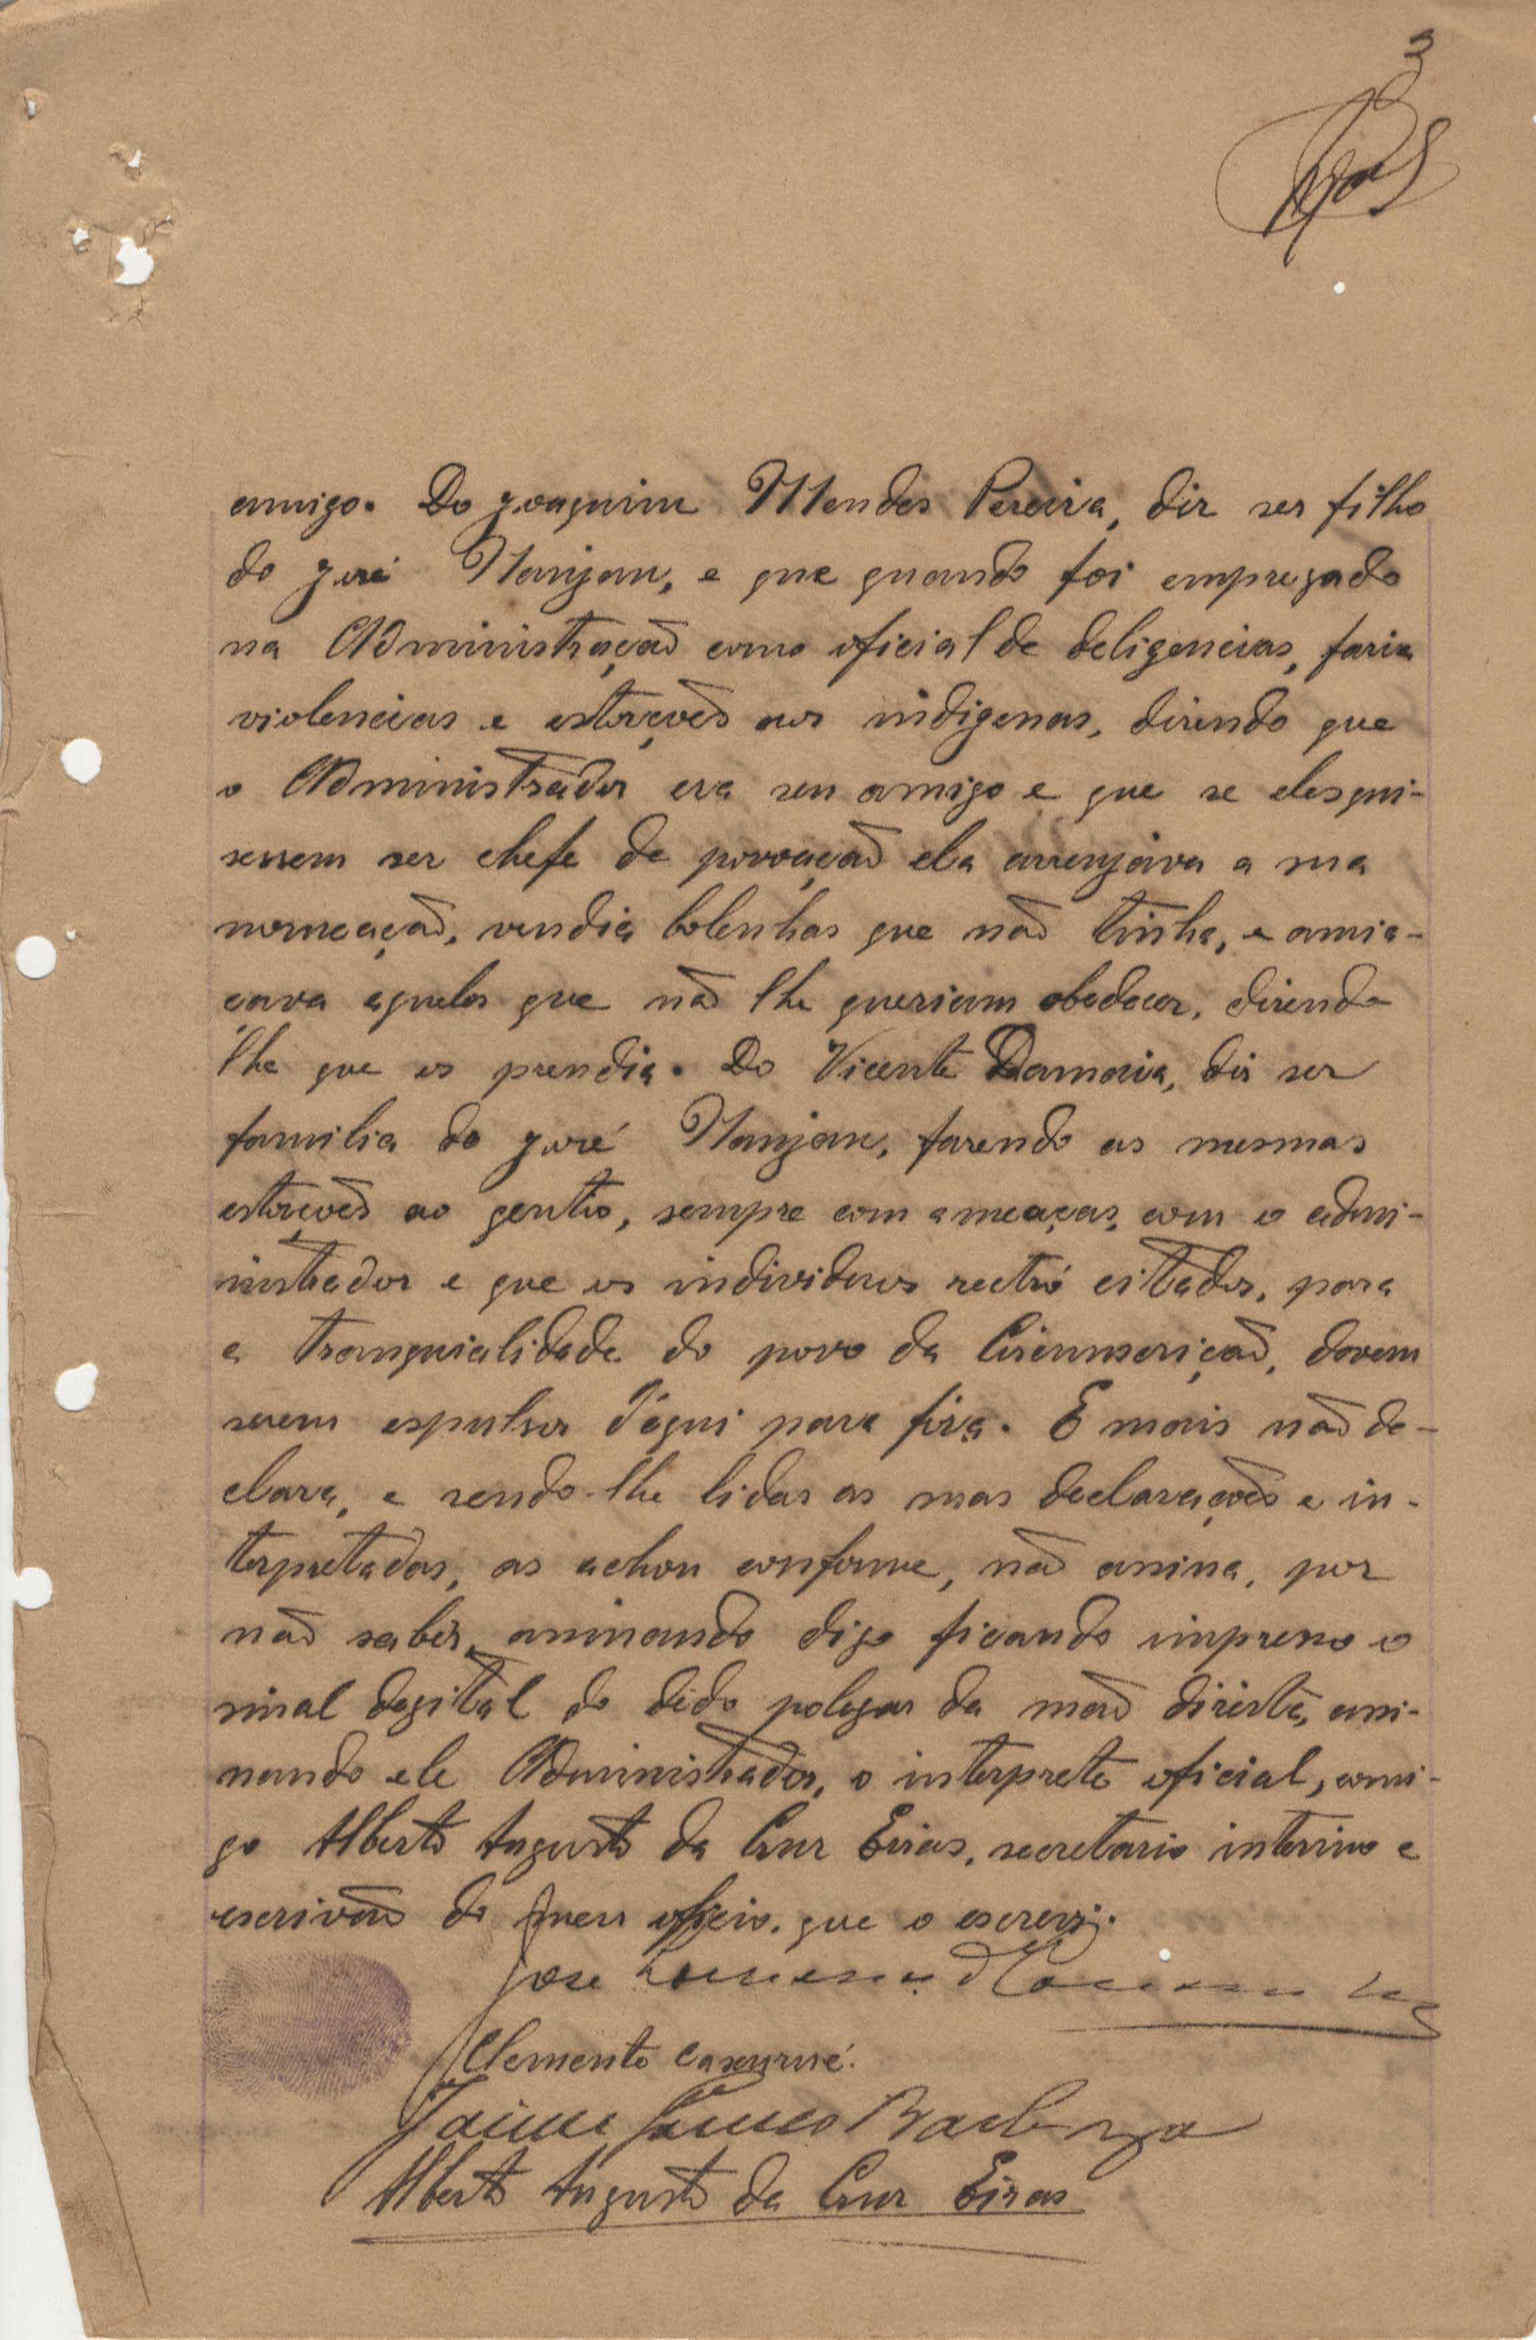 3
amigo. Do Joaquim Mendes Pereira, diz ser filho
do José Nanjan, e que quando foi empregado
na Administração como oficial de deligencias, fazia
violencias e estorções aos indigenas, dizendo que
o Administrador era seu amigo e que se eles qui-
sessem ser chefe de povoação ele arrenjava a sua
nomeação, vendia bolenhas que não tinha, e amia-
çava aqueles que não lhe queriam obedecer, dizendo
lhe que os prendia. Do Vicente Damasia, diz ser
familia do José Nanjan, fazendo as mesmas
estorções ao gentio, sempre com ameaças, com o admi-
nistrador e que os individuos rectró citados, para
a tranquialidade do povo da Circunscrição, devem
serem espulsos d'aqui para fóra. E mais não de-
clara, e sendo-lhe lidas as suas declarações e in-
terpretadas, as achou conforme, não assina, por
não saber, assinando digo ficando impresso o
sinal degital do dedo polegar da mão direita, assi-
nando ele Administrador, o interprete oficial, comi-
go Alberto Augusto da Cruz Eiras, secretario interino e
escrivão do meu oficio, que o escrevi.
José
Clemente Cassumé.
Jaime Gomes Barbosa
Alberto Augusto da Cruz Eiras